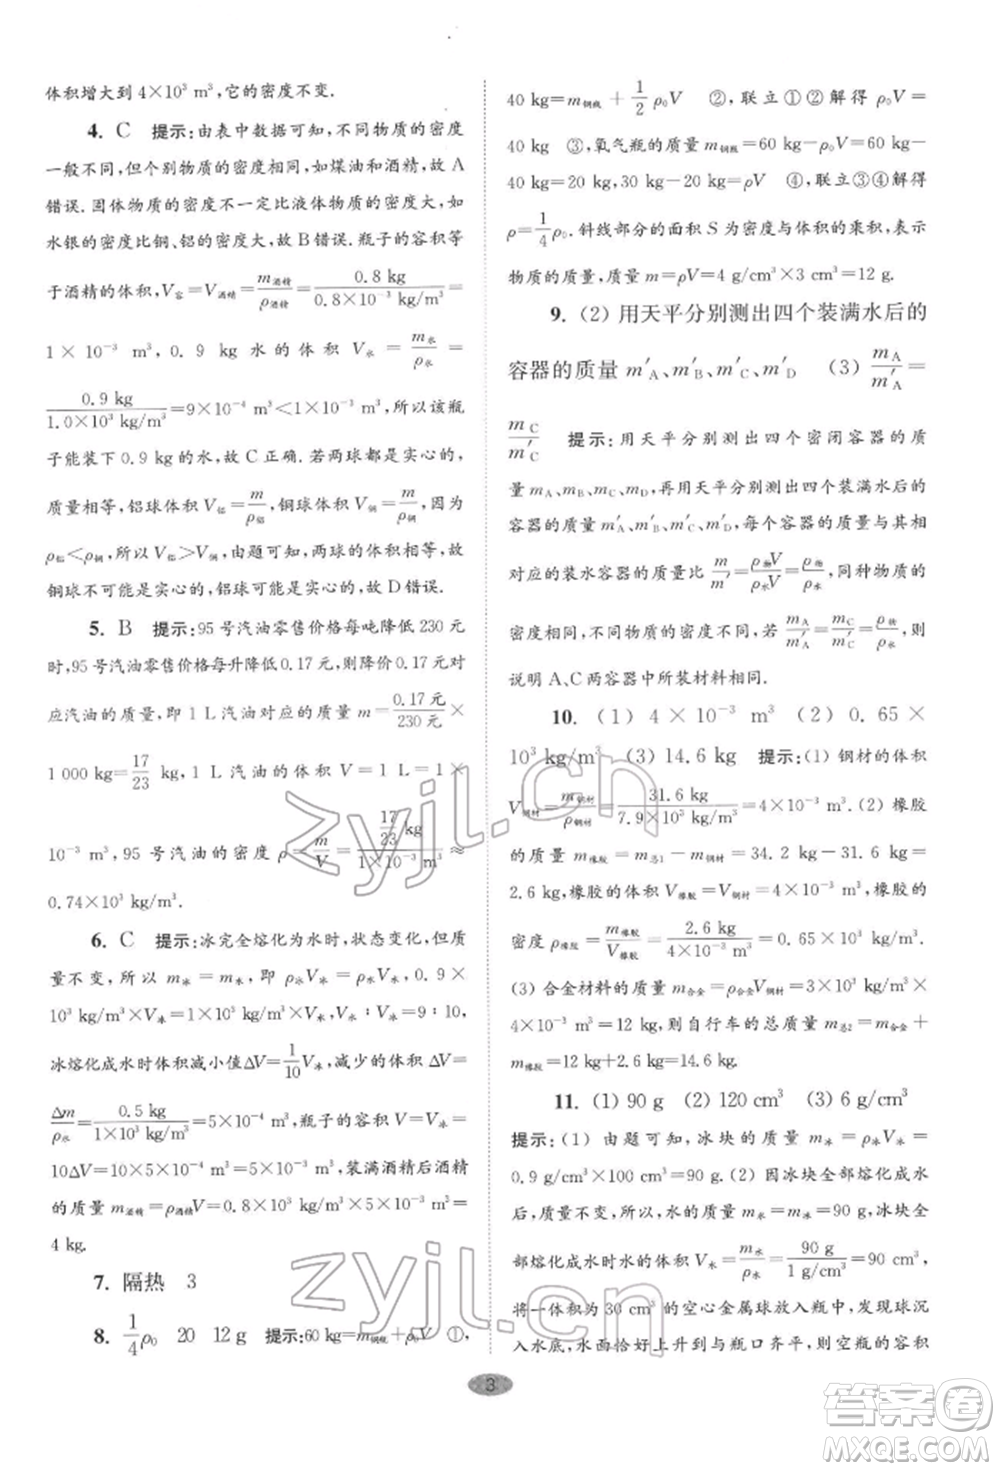 体积增大到 4×10³ m³,它的密度不变.
4. C 提示:由表中数据可知,不同物质的密度
一般不同,但个别物质的密度相同,如煤油和酒精,故 A
错误.固体物质的密度不一定比液体物质的密度大,如
水银的密度比铜、铝的密度大,故 B 错误.瓶子的容积等
于酒精的体积,V容=V酒精=m酒精/ρ酒精=0.8 kg/0.8×10³ kg/m³=
1×10⁻³ m³,0.9 kg 水的体积 V水=m水/ρ水=
0.9 kg/1.0×10³ kg/m³=9×10⁻⁴ m³<1×10⁻³ m³,所以该瓶
子能装下 0.9 kg 的水,故 C 正确.若两球都是实心的,
质量相等,铝球体积 V铝=m/ρ铝,铜球体积 V铜=m/ρ铜,因为
ρ铝<ρ铜,所以 V铝>V铜,由题可知,两球的体积相等,故
铜球不可能是实心的,铝球可能是实心的,故 D 错误.
5. B 提示:95 号汽油零售价格每吨降低 230 元
时,95 号汽油零售价格每升降低 0.17 元,则降价 0.17 元对
应汽油的质量,即 1 L 汽油对应的质量 m=0.17 元/230 元×
1 000 kg=17/23 kg,1 L 汽油的体积 V=1 L=1×
10⁻³ m³,95 号汽油的密度 ρ=m/V=17/23 kg/1×10⁻³ m³≈
0.74×10³ kg/m³.
6. C 提示:冰完全熔化为水时,状态变化,但质
量不变,所以 m冰=m水,即 ρ冰V冰=ρ水V水,0.9×
10³ kg/m³×V冰=1×10³ kg/m³×V水,V水∶V冰=9∶10,
冰熔化成水时体积减小值ΔV=1/10V冰,减少的体积 ΔV=
Δm/ρ水=0.5 kg/1×10³ kg/m³=5×10⁻⁴ m³,瓶子的容积 V=V冰=
10ΔV=10×5×10⁻⁴ m³=5×10⁻³ m³,装满酒精后酒精
的质量 m酒精=ρ酒精V=0.8×10³ kg/m³×5×10⁻³ m³=
4 kg.
7. 隔热 3
8. 1/4ρ₀ 20 12 g 提示:60 kg=m钢瓶+ρ₀V ①,
40 kg=m钢瓶+1/2ρ₀V ②,联立①②解得 ρ₀V=
40 kg ③,氧气瓶的质量 m钢瓶=60 kg-ρ₀V=60 kg-
40 kg=20 kg,30 kg-20 kg=ρV ④,联立③④解得
ρ=1/4ρ₀.斜线部分的面积 S 为密度与体积的乘积,表示
物质的质量,质量 m=ρV=4 g/cm³×3 cm³=12 g.
9. (2) 用天平分别测出四个装满水后的
容器的质量 m′A、m′B、m′C、m′D (3) mA/m′A=
mC/m′C 提示:用天平分别测出四个密闭容器的质
量 mA、mB、mC、mD,再用天平分别测出四个装满水后的
容器的质量 m′A、m′B、m′C、m′D,每个容器的质量与其相
对应的装水容器的质量比 m/m′=ρ物V/ρ水V=ρ物/ρ水,同种物质的
密度相同,不同物质的密度一般不同,若 mA/m′A=mC/m′C=ρ物/ρ水,则
说明 A、C 两容器中所装材料相同.
10. (1) 4×10⁻³ m³ (2) 0.65×
10³ kg/m³ (3) 14.6 kg 提示:(1) 钢材的体积
V钢材=m钢材/ρ钢材=31.6 kg/7.9×10³ kg/m³=4×10⁻³ m³.(2) 橡胶
的质量 m橡胶=m总1-m钢材=34.2 kg-31.6 kg=
2.6 kg,橡胶的体积 V橡胶=V钢材=4×10⁻³ m³,橡胶的
密度 ρ橡胶=m橡胶/V橡胶=2.6 kg/4×10⁻³ m³=0.65×10³ kg/m³.
(3) 合金材料的质量 m合金=ρ合金V钢材=3×10³ kg/m³×
4×10⁻³ m³=12 kg,则自行车的总质量 m总2=m合金+
m橡胶=12 kg+2.6 kg=14.6 kg.
11. (1) 90 g (2) 120 cm³ (3) 6 g/cm³
提示:(1) 由题可知,冰块的质量 m冰=ρ冰V冰=
0.9 g/cm³×100 cm³=90 g.(2) 因冰块全部熔化成水
后,质量不变,所以,水的质量 m水=m冰=90 g,冰块全
部熔化成水时水的体积 V水=m水/ρ水=90 g/1 g/cm³=90 cm³,
将一体积为 30 cm³ 的空心金属球放入瓶中,发现球沉
入水底,水面恰好上升到与瓶口齐平,所以瓶子的容积
3
zyjl.cn
zyjl.cn
答案卷
MXQE.COM